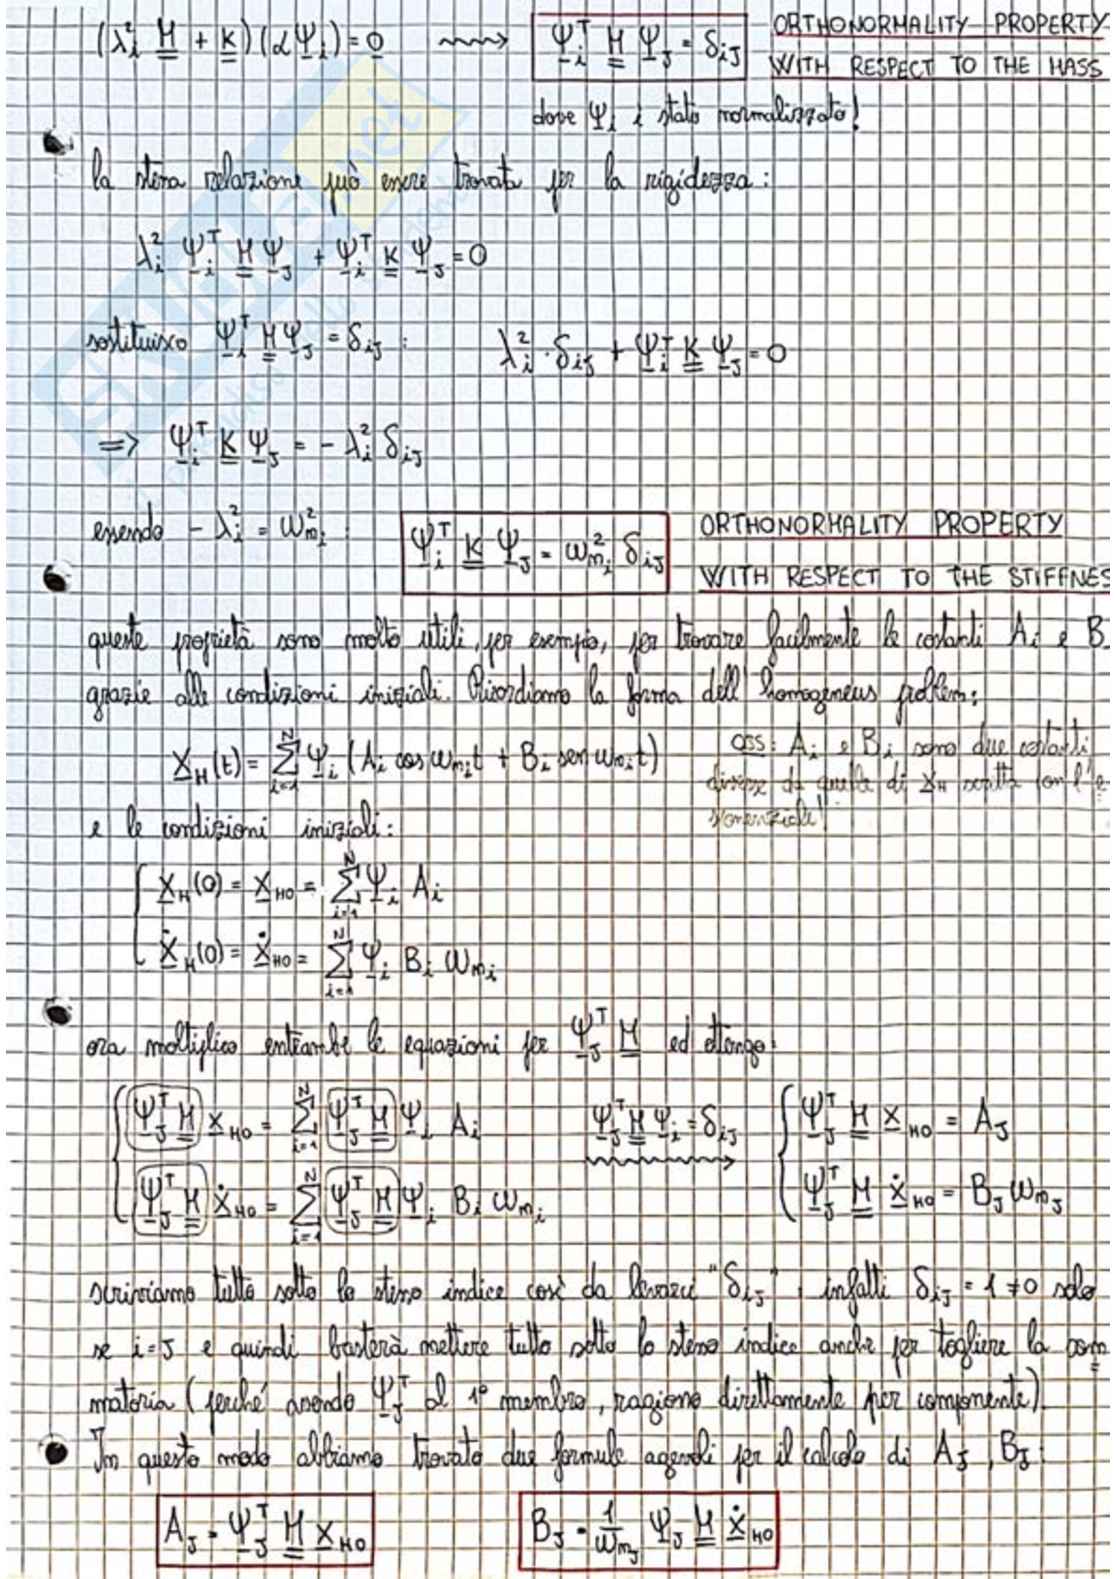 (λ_i² M + K)(αΨ_i) = 0 ⇝ Ψ_i^T M Ψ_J = δ_iJ ORTHONORMALITY PROPERTY
WITH RESPECT TO THE MASS
dove Ψ_i è stato normalizzato!
la stessa relazione può essere trovata per la rigidezza:
λ_i² Ψ_i^T M Ψ_J + Ψ_i^T K Ψ_J = 0
sostituisco Ψ_i^T M Ψ_J = δ_iJ : λ_i² · δ_iJ + Ψ_i^T K Ψ_J = 0
=> Ψ_i^T K Ψ_J = - λ_i² δ_iJ
essendo - λ_i² = ω_ni² : Ψ_i^T K Ψ_J = ω_ni² δ_iJ ORTHONORMALITY PROPERTY
WITH RESPECT TO THE STIFFNES
queste proprietà sono molto utili, per esempio, per trovare facilmente le costanti A_i e B
grazie alle condizioni iniziali. Ricordiamo la forma dell'homogeneus problem:
X_H(t) = Σ_{i=1}^N Ψ_i (A_i cos ω_ni t + B_i sen ω_ni t) OSS: A_i e B_i sono due costanti
diverse da quelle di X_H scritta con l'e
sponenziale!
e le condizioni iniziali:
X_H(0) = X_H0 = Σ_{i=1}^N Ψ_i A_i
Ẋ_H(0) = Ẋ_H0 = Σ_{i=1}^N Ψ_i B_i ω_ni
ora moltiplico entrambe le equazioni per Ψ_J^T M ed ottengo:
Ψ_J^T M X_H0 = Σ_{i=1}^N Ψ_J^T M Ψ_i A_i Ψ_J^T M Ψ_i = δ_iJ Ψ_J^T M X_H0 = A_J
Ψ_J^T M Ẋ_H0 = Σ_{i=1}^N Ψ_J^T M Ψ_i B_i ω_ni Ψ_J^T M Ẋ_H0 = B_J ω_nJ
scriviamo tutto sotto lo stesso indice così da levarci "δ_iJ", infatti δ_iJ = 1 ≠ 0 solo
se i=J e quindi basterà mettere tutto sotto lo stesso indice anche per togliere la som
matoria (perché avendo Ψ_J^T al 1° membro, ragiono direttamente per componente).
In questo modo abbiamo trovato due formule agevoli per il calcolo di A_J, B_J:
A_J = Ψ_J^T M X_H0 B_J = 1/ω_nJ Ψ_J M Ẋ_H0